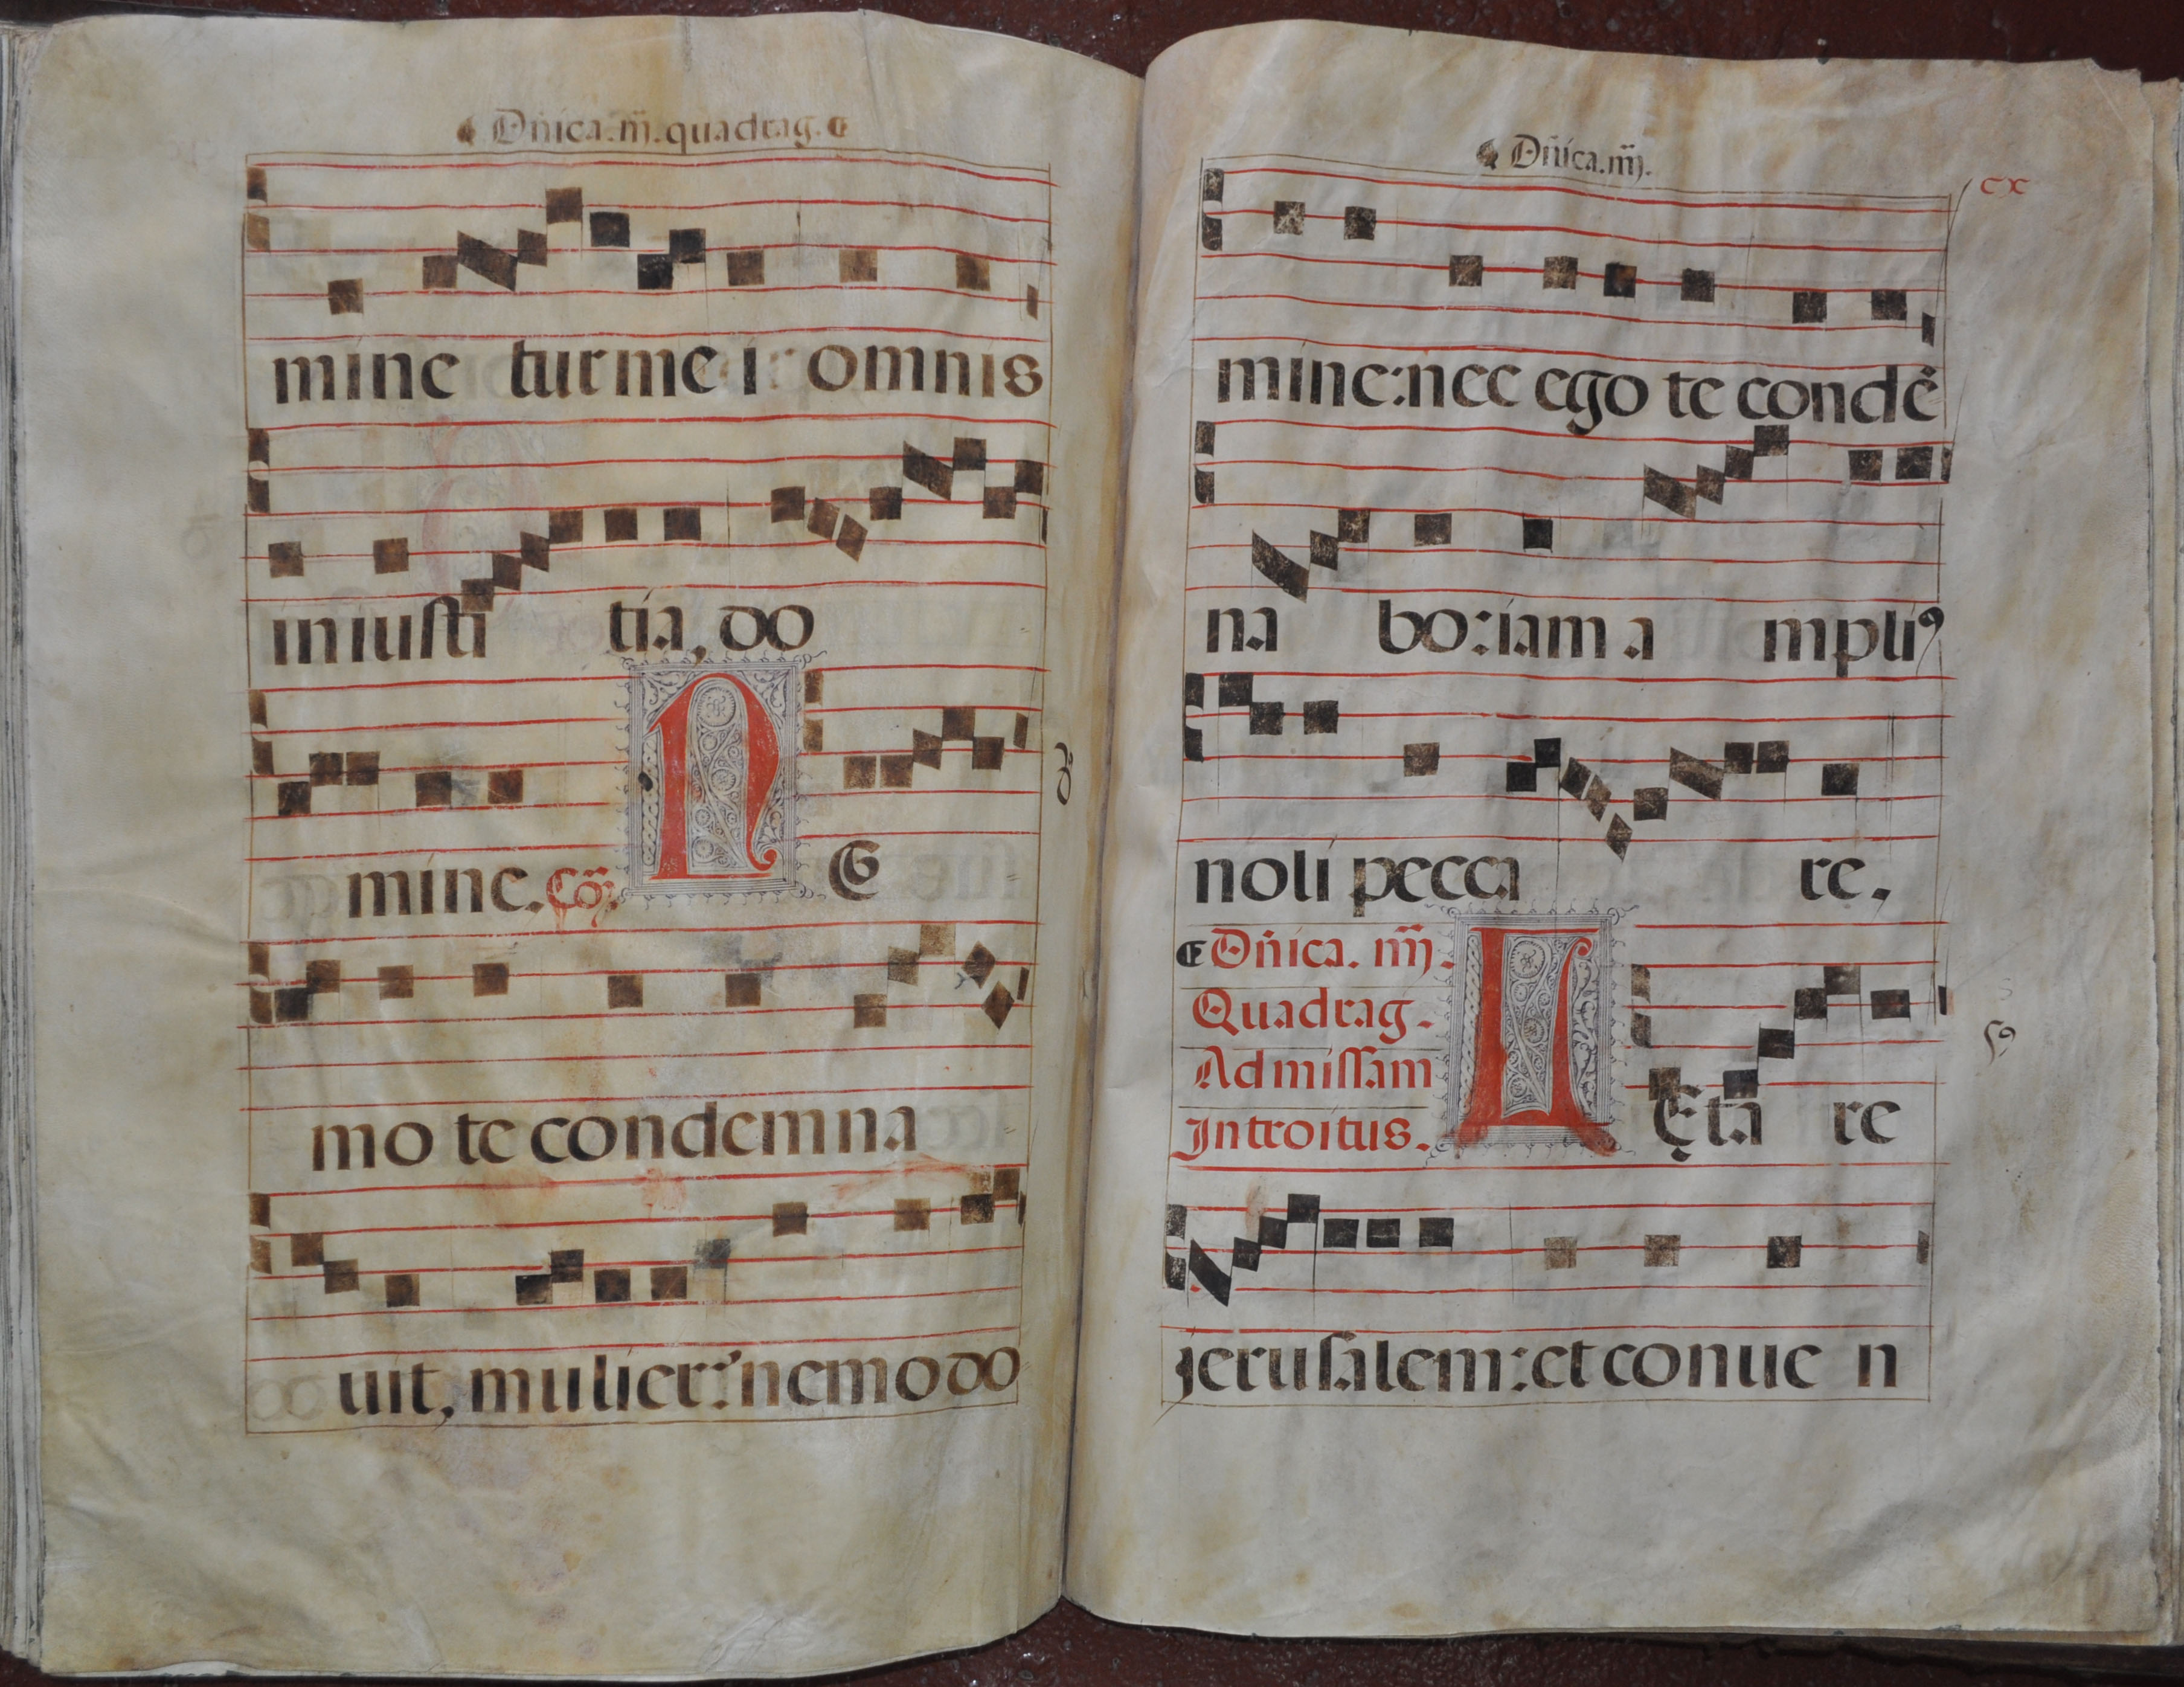 Dñica.iij.quadrag.
mine tur me i omnis
iniusti tia, do
mine. Cõ. NE
mo te condemna
uit, mulier? nemo do
Dñica.iiij.
cx
mine: nec ego te condẽ
na bo: iam a mpliꝰ
noli pecca re.
Dñica. iiij.
Quadrag.
Ad missam
Introitus.
LĘta re
jerusalem: et conue n